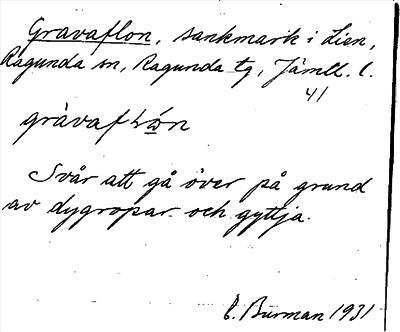 Gravaflon, sankmark i Lien,
Ragunda sn, Ragunda tg, Jämtl. l.
41
gràvaf
Svår att gå över på grund
av dygropar och gyttja.
C. Burman 1931